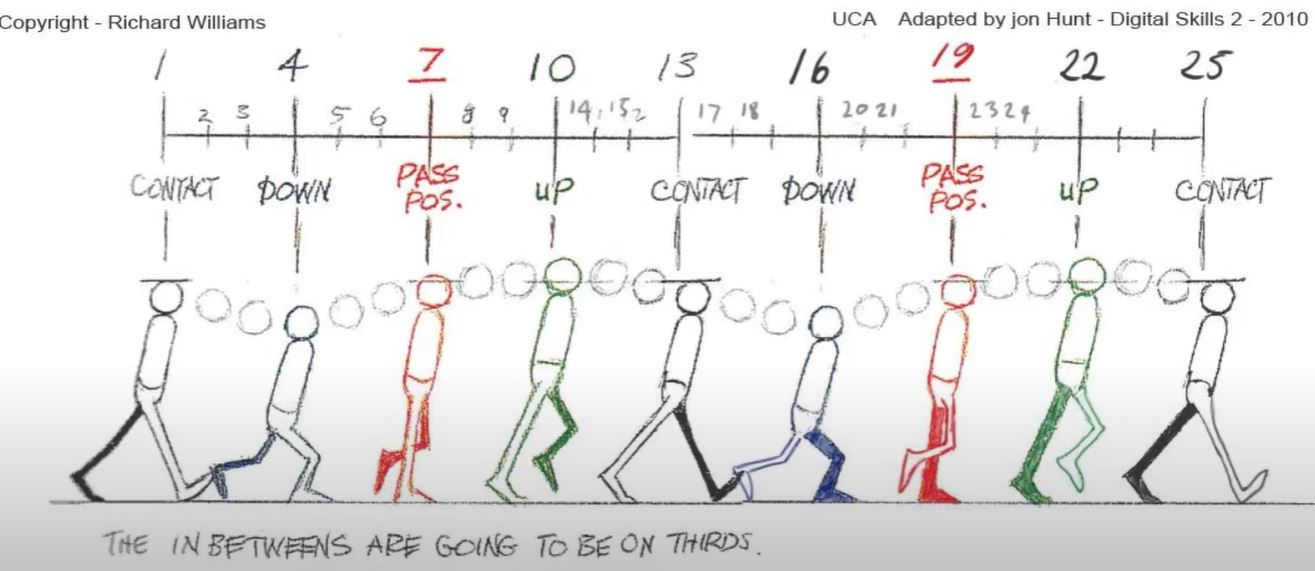 Copyright - Richard Williams
UCA Adapted by jon Hunt - Digital Skills 2 - 2010
1 4 7 10 13 16 19 22 25
2 3 5 6 8 9 14 15 2 17 18 20 21 23 24
CONTACT DOWN PASS POS. UP CONTACT DOWN PASS POS. UP CONTACT
THE INBETWEENS ARE GOING TO BE ON THIRDS.